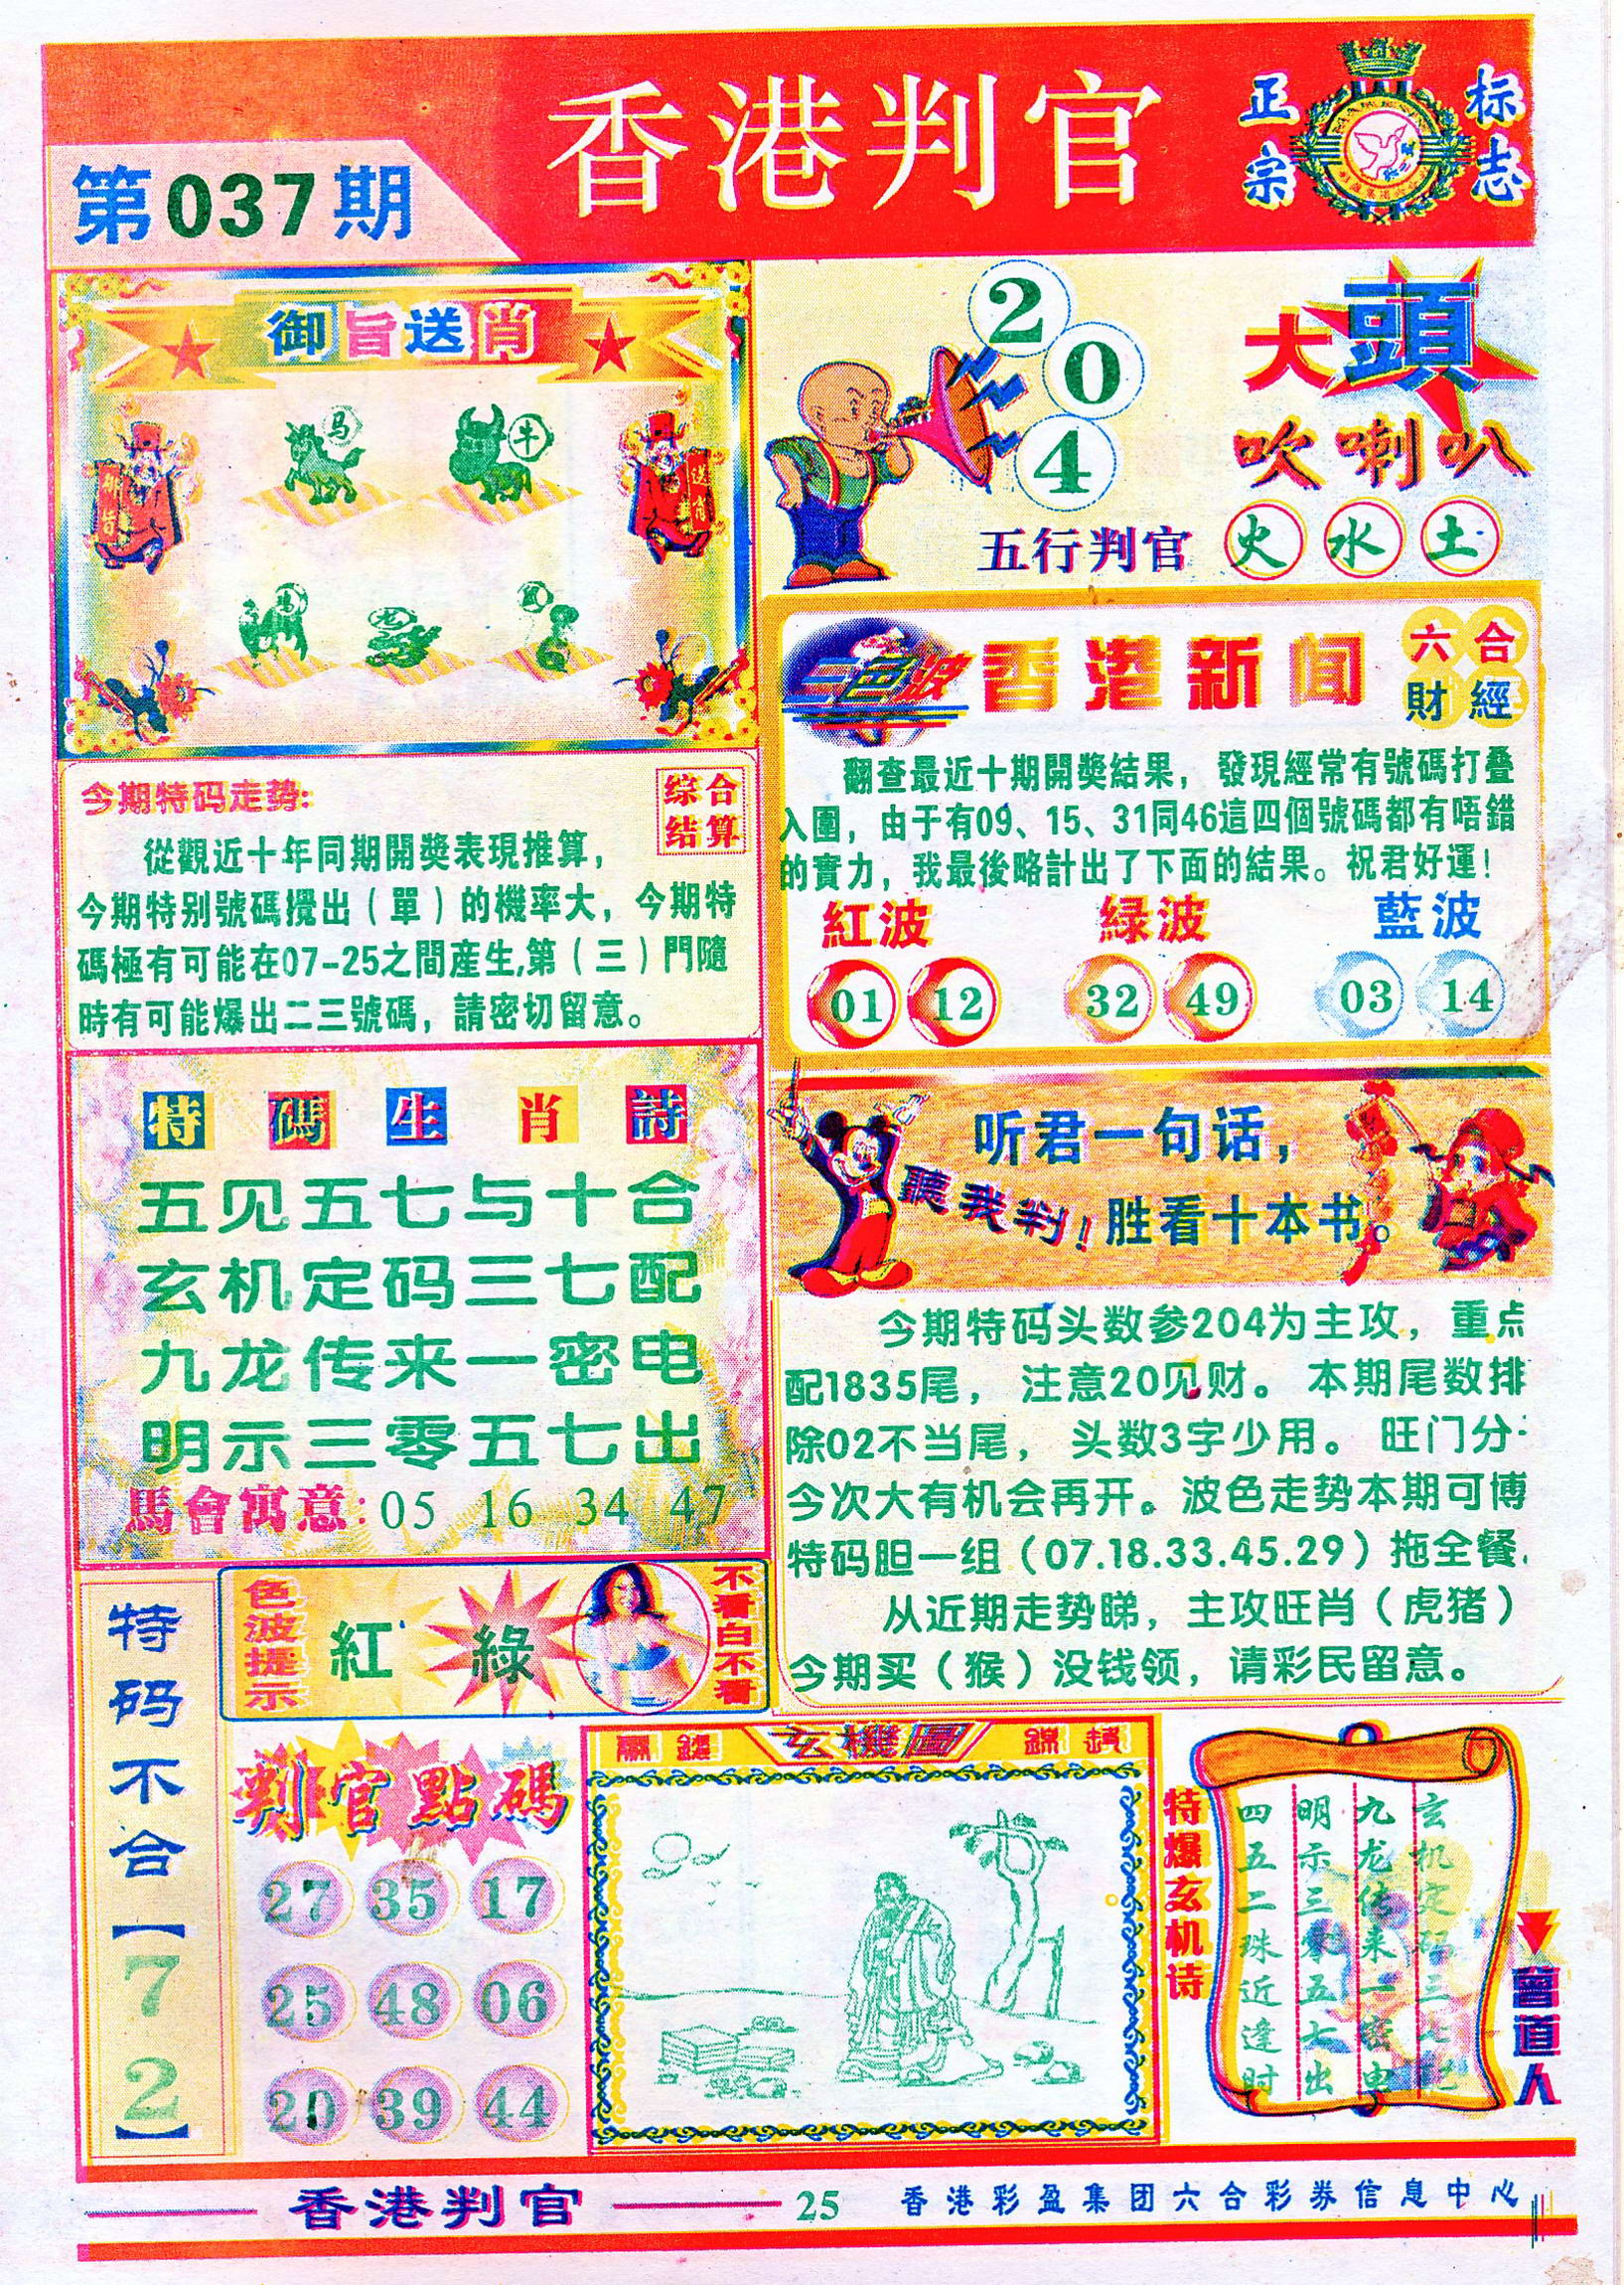 香港判官
正宗
标志
第037期
御旨送肖
马
牛
龙
大頭
吹喇叭
2
0
4
五行判官 火 水 土
三色波
香港新闻
六合
財經
翻查最近十期開獎結果，發現經常有號碼打叠
入圍，由于有09、15、31同46這四個號碼都有唔錯
的實力，我最後略計出了下面的結果。祝君好運！
紅波 緑波 藍波
01 12 32 49 03 14
今期特码走势:
综合
结算
從觀近十年同期開獎表現推算，
今期特别號碼攪出（單）的機率大，今期特
碼極有可能在07-25之間産生,第（三）門隨
時有可能爆出二三號碼，請密切留意。
特碼生肖詩
五见五七与十合
玄机定码三七配
九龙传来一密电
明示三零五七出
馬會寓意: 05 16 34 47
听君一句话，
聽我判！胜看十本书。
今期特码头数参204为主攻，重点
配1835尾，注意20见财。本期尾数排
除02不当尾，头数3字少用。旺门分
今次大有机会再开。波色走势本期可博
特码胆一组（07.18.33.45.29）拖全餐.
从近期走势睇，主攻旺肖（虎猪）
今期买（猴）没钱领，请彩民留意。
特码不合【72】
色波提示
紅 綠
不看白不看
判官點碼
27 35 17
25 48 06
20 39 44
玄機圖
特爆玄机诗
玄机定码三七配
九龙传来一密电
明示三零五七出
四五二珠近逢时
曾道人
香港判官 25 香港彩盈集团六合彩券信息中心